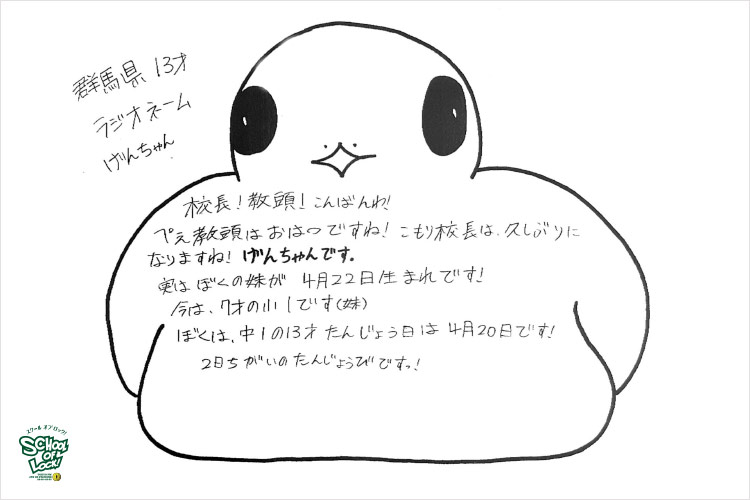 群馬県 13才
ラジオネーム
げんちゃん
校長!教頭!こんばんわ!
ぺえ教頭はおはつですね!こもり校長は、久しぶりに
なりますね!げんちゃんです。
実はぼくの妹が 4月22日生まれです!
今は、7才の小1です(妹)
ぼくは、中1の13才 たんじょう日は 4月20日です!
2日ちがいのたんじょうびですっ!
スクール オブ ロック!
SCHOOL
OF
LOCK!